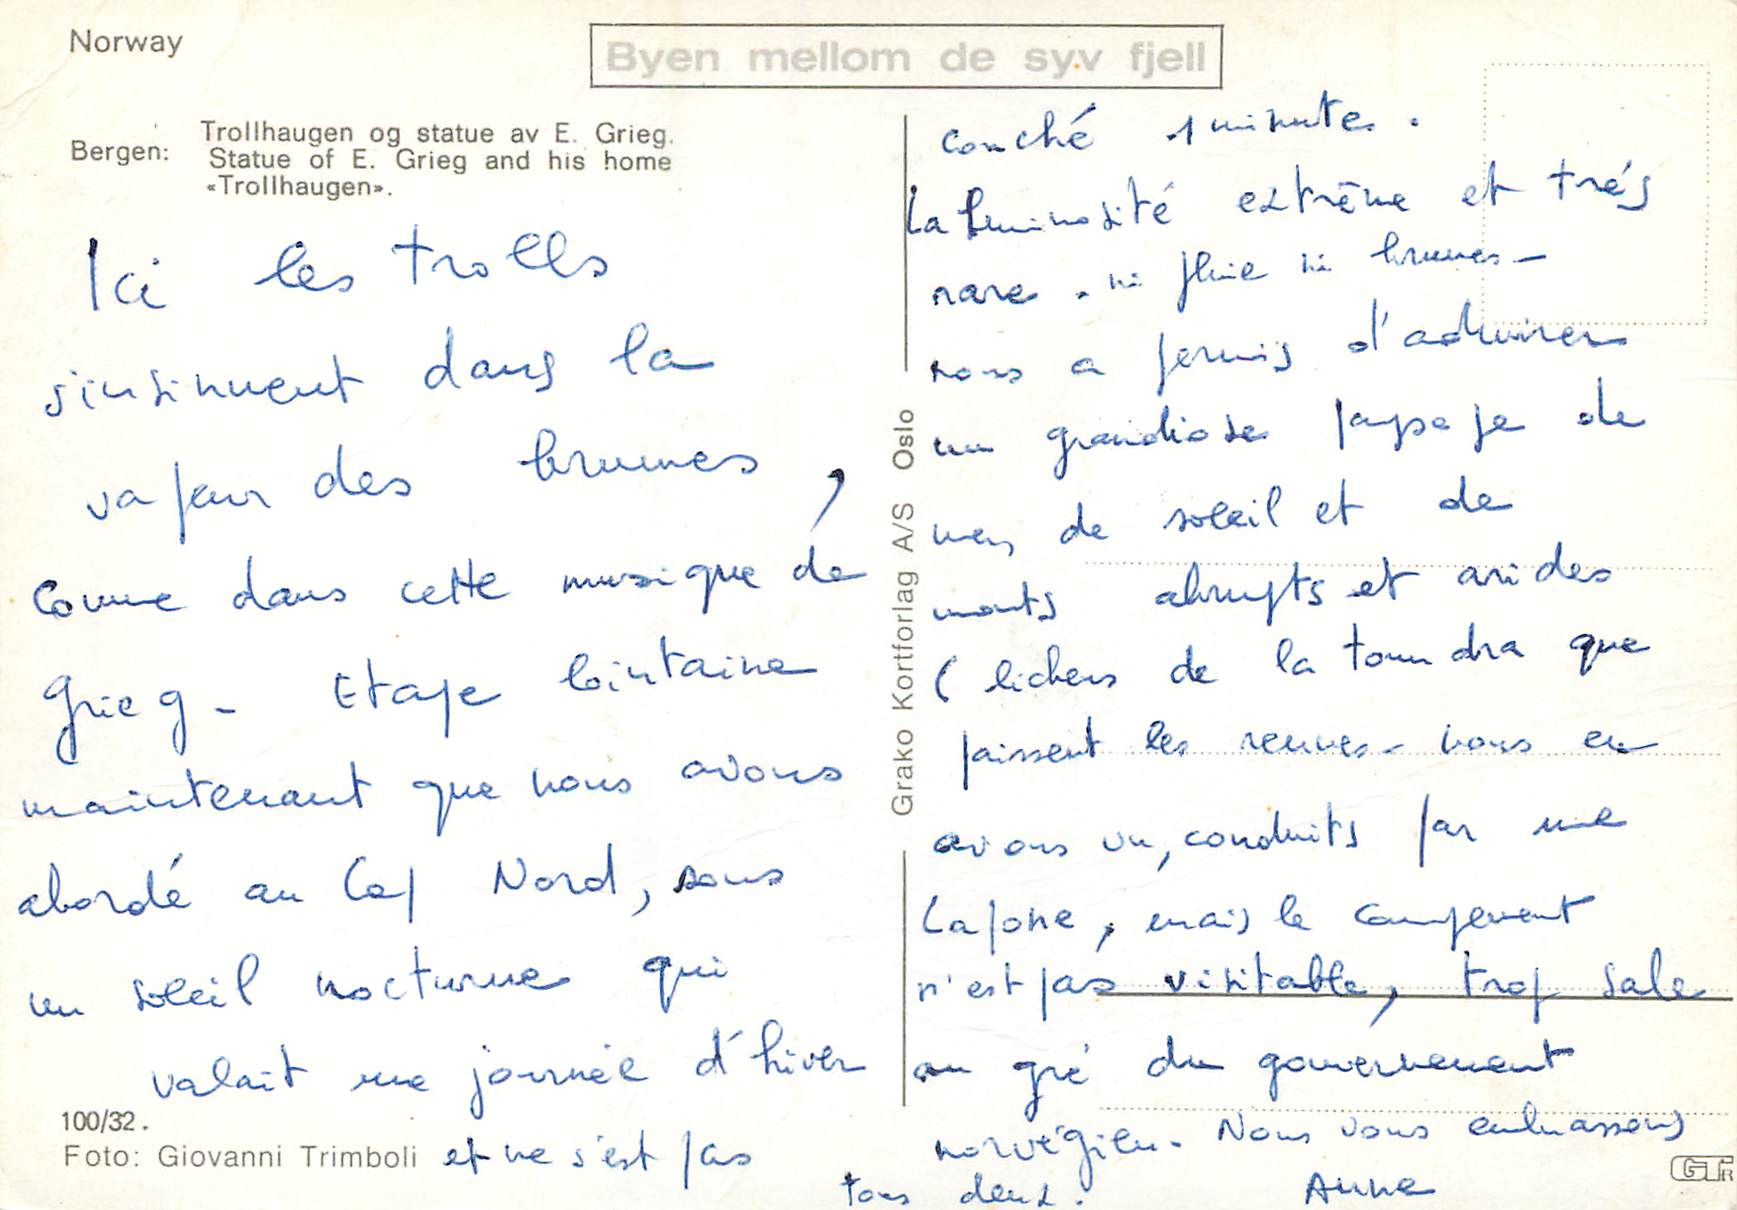 Norway
Byen mellom de syv fjell
Bergen:
Trollhaugen og statue av E. Grieg.
Statue of E. Grieg and his home
«Trollhaugen».
Ici les trolls
s'insinuent dans la
vapeur des brumes,
comme dans cette musique de
Grieg - Etape lointaine
maintenant que nous avons
abordé au Cap Nord, sous
un soleil nocturne qui
valait une journée d'hiver
et ne s'est pas
100/32.
Foto: Giovanni Trimboli
Grako Kortforlag A/S Oslo
couché 1 minute.
La luminosité extrême et trés
rare. ni pluie ni brumes -
nous a permis d'admirer
un grandiose paysage de
mer, de soleil et de
monts abrupts et arides
( lichens de la toundra que
paissent les rennes - nous en
avons vu, conduits par une
Lapone, mais le campement
n'est pas visitable, trop sale
au gré du gouvernement
norvégien. Nous vous embrassons
tous deux. Anne
GTR